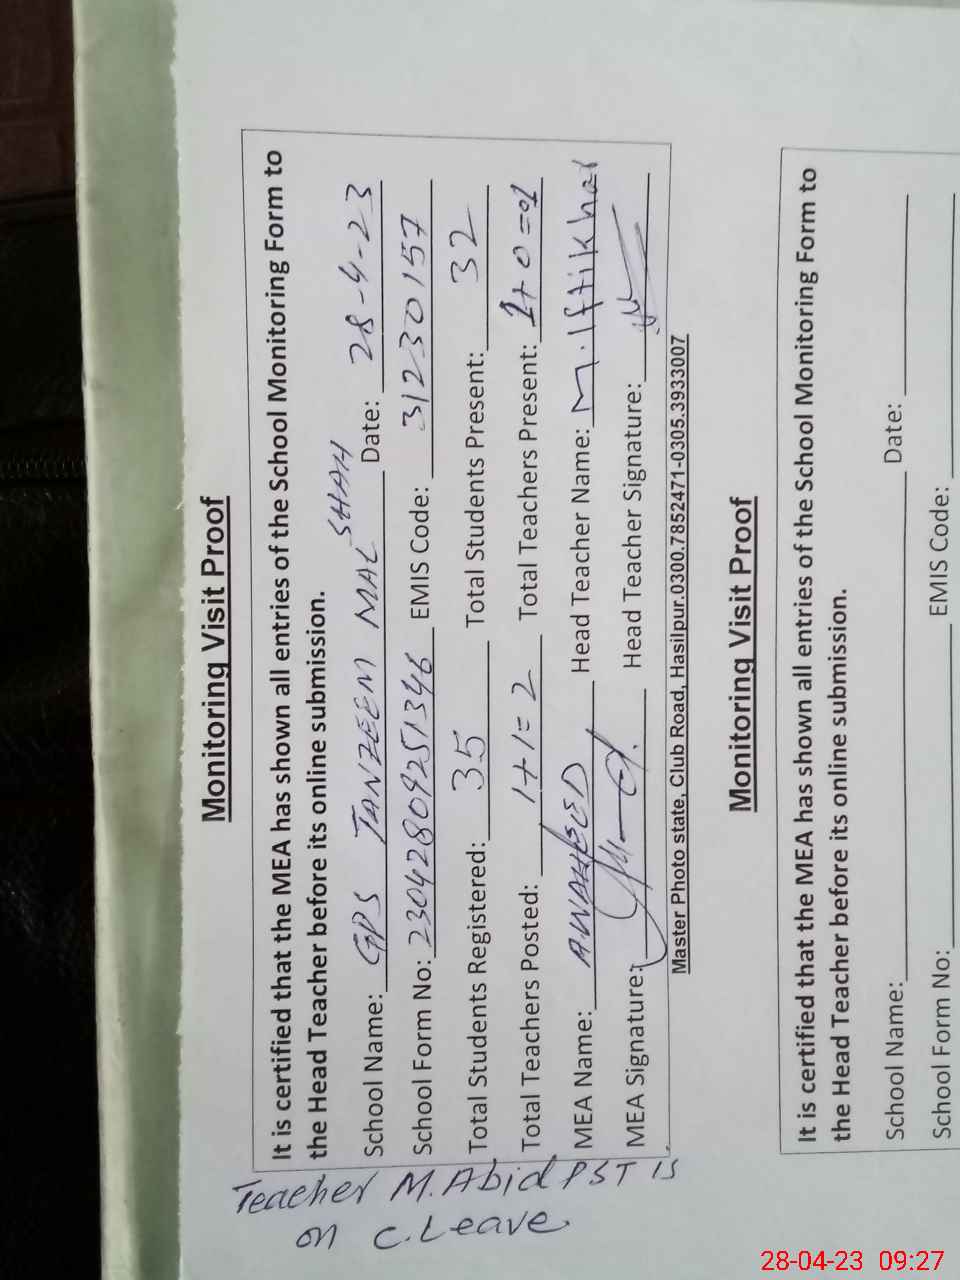 Monitoring Visit Proof
It is certified that the MEA has shown all entries of the School Monitoring Form to
the Head Teacher before its online submission.
School Name: GPS TANZEEM MAL SHAH Date: 28-4-23
School Form No: 23042809251346 EMIS Code: 31230157
Total Students Registered: 35 Total Students Present: 32
Total Teachers Posted: 1+1=2 Total Teachers Present: 1+0=01
MEA Name: A.WAHEED Head Teacher Name: M.Iftikhar
MEA Signature: Head Teacher Signature:
Master Photo state, Club Road, Hasilpur.0300.7852471-0305.3933007
Teacher M.Abid PST is
on C.Leave
Monitoring Visit Proof
It is certified that the MEA has shown all entries of the School Monitoring Form to
the Head Teacher before its online submission.
School Name: Date:
School Form No: EMIS Code:
28-04-23 09:27